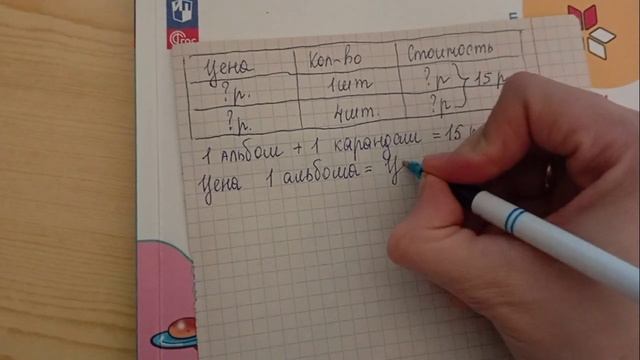 Цена Кол-во Стоимость
?р. 1шт ?р } 15 р
?р. 4шт. ?р
1 альбом + 1 карандаш = 15
Цена 1 альбома = Ц